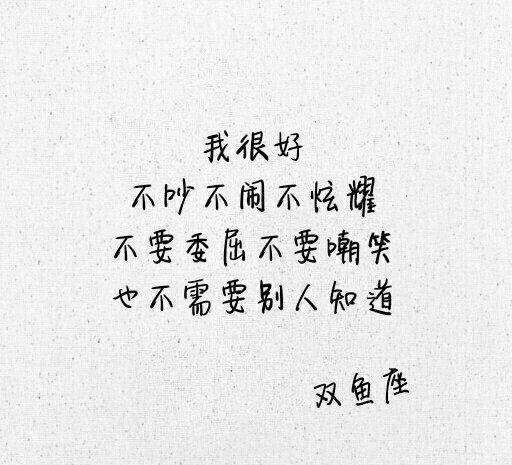 我很好
不吵不闹不炫耀
不要委屈不要嘲笑
也不需要别人知道
双鱼座